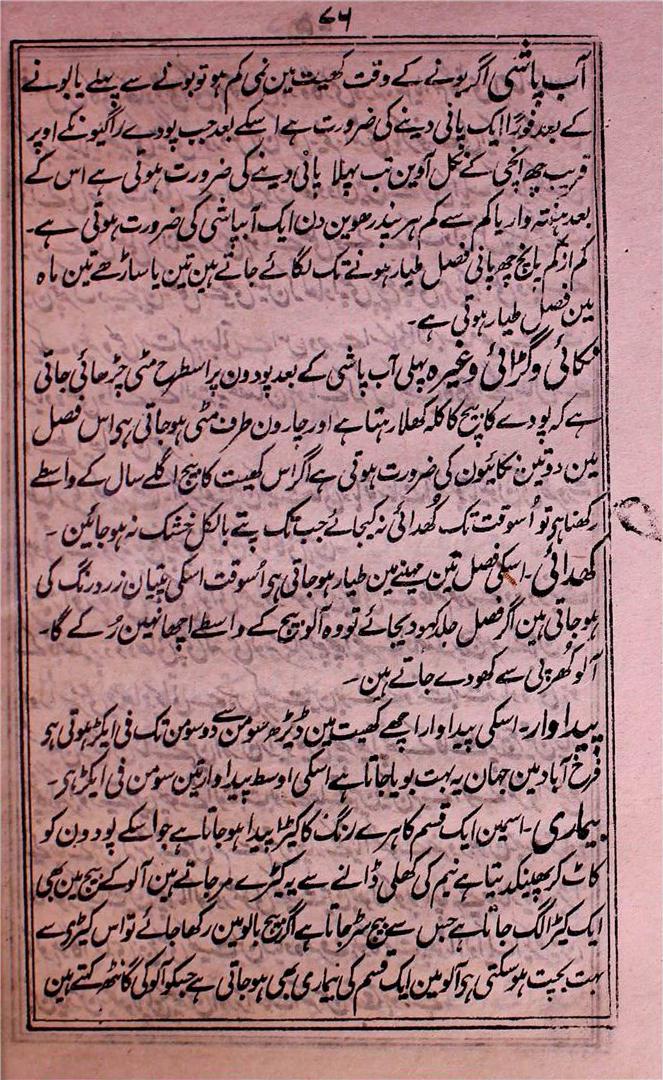 ۷۶
آب پاشی اگر بونے کے وقت کھیت مین نمی کم ہو تو بونے سے پہلے یا بونے
کے بعد فوراً ایک پانی دینے کی ضرورت ہے اسکے بعد جب پودے زاگیونکے اوپر
قریب چھ انچی کے نکل آوین تب پہلا پانی دینے کی ضرورت ہوتی ہے اس کے
بعد ہفتہ وار یا کم سے کم ہر پندرھوین دن ایک آبپاشی کی ضرورت ہوتی ہے۔
کم از کم پانچ چھ پانی فصل طیار ہونے تک لگائے جاتے ہین تین یا ساڑھے تین ماہ
مین فصل طیار ہوتی ہے۔
نکائی و گڑائی وغیرہ پہلی آب پاشی کے بعد پودون پر اسطرح مٹی چڑھائی جاتی
ہے کہ پودے کا بیچ کا کلہ کھلا رہتا ہے اور چارون طرف مٹی ہو جاتی ہو اس فصل
مین دو تین نکائیون کی ضرورت ہوتی ہے اگر اس کھیت کا بیج اگلے سال کے واسطے
رکھنا ہو تو اُسوقت تک کُھدائی نہ کیجائے جب تک پتے بالکل خشک نہ ہو جائین ۔
کھدائی ۔ اسکی فصل تین مہینے مین طیار ہو جاتی ہو اُسوقت اسکی پتیان زرد رنگ کی
ہو جاتی ہین اگر فصل جلد کھود یجائے تو وہ آلو بیج کے واسطے اچھا نہین رُکے گا۔
آلو کُھرپی سے کھودے جاتے ہین۔
پیداوار۔ اسکی پیداوار اچھے کھیت مین ڈیڑھ سو من سے دو سو من تک فی ایکڑ ہوتی ہو
فرخ آباد مین جہان یہ بہت بویا جاتا ہے اسکی اوسط پیداوار تین سو من فی ایکڑ ہو۔
بیماری۔ اسمین ایک قسم کا ہرے رنگ کا کیڑا پیدا ہو جاتا ہے جو اسکے پودون کو
کاٹ کر پھینکدیتا ہے نیم کی کھلی ڈالنے سے یہ کیڑے مر جاتے ہین آلو کے بیج مین بھی
ایک کیڑا لگ جاتا ہے جس سے بیج سڑ جاتا ہے اگر بیج بالو مین رکھا جائے تو اس کیڑی سے
بہت بچت ہو سکتی ہو آلو مین ایک قسم کی بیماری بھی ہو جاتی ہے جسکو آلو کی گانٹھ کہتے ہین